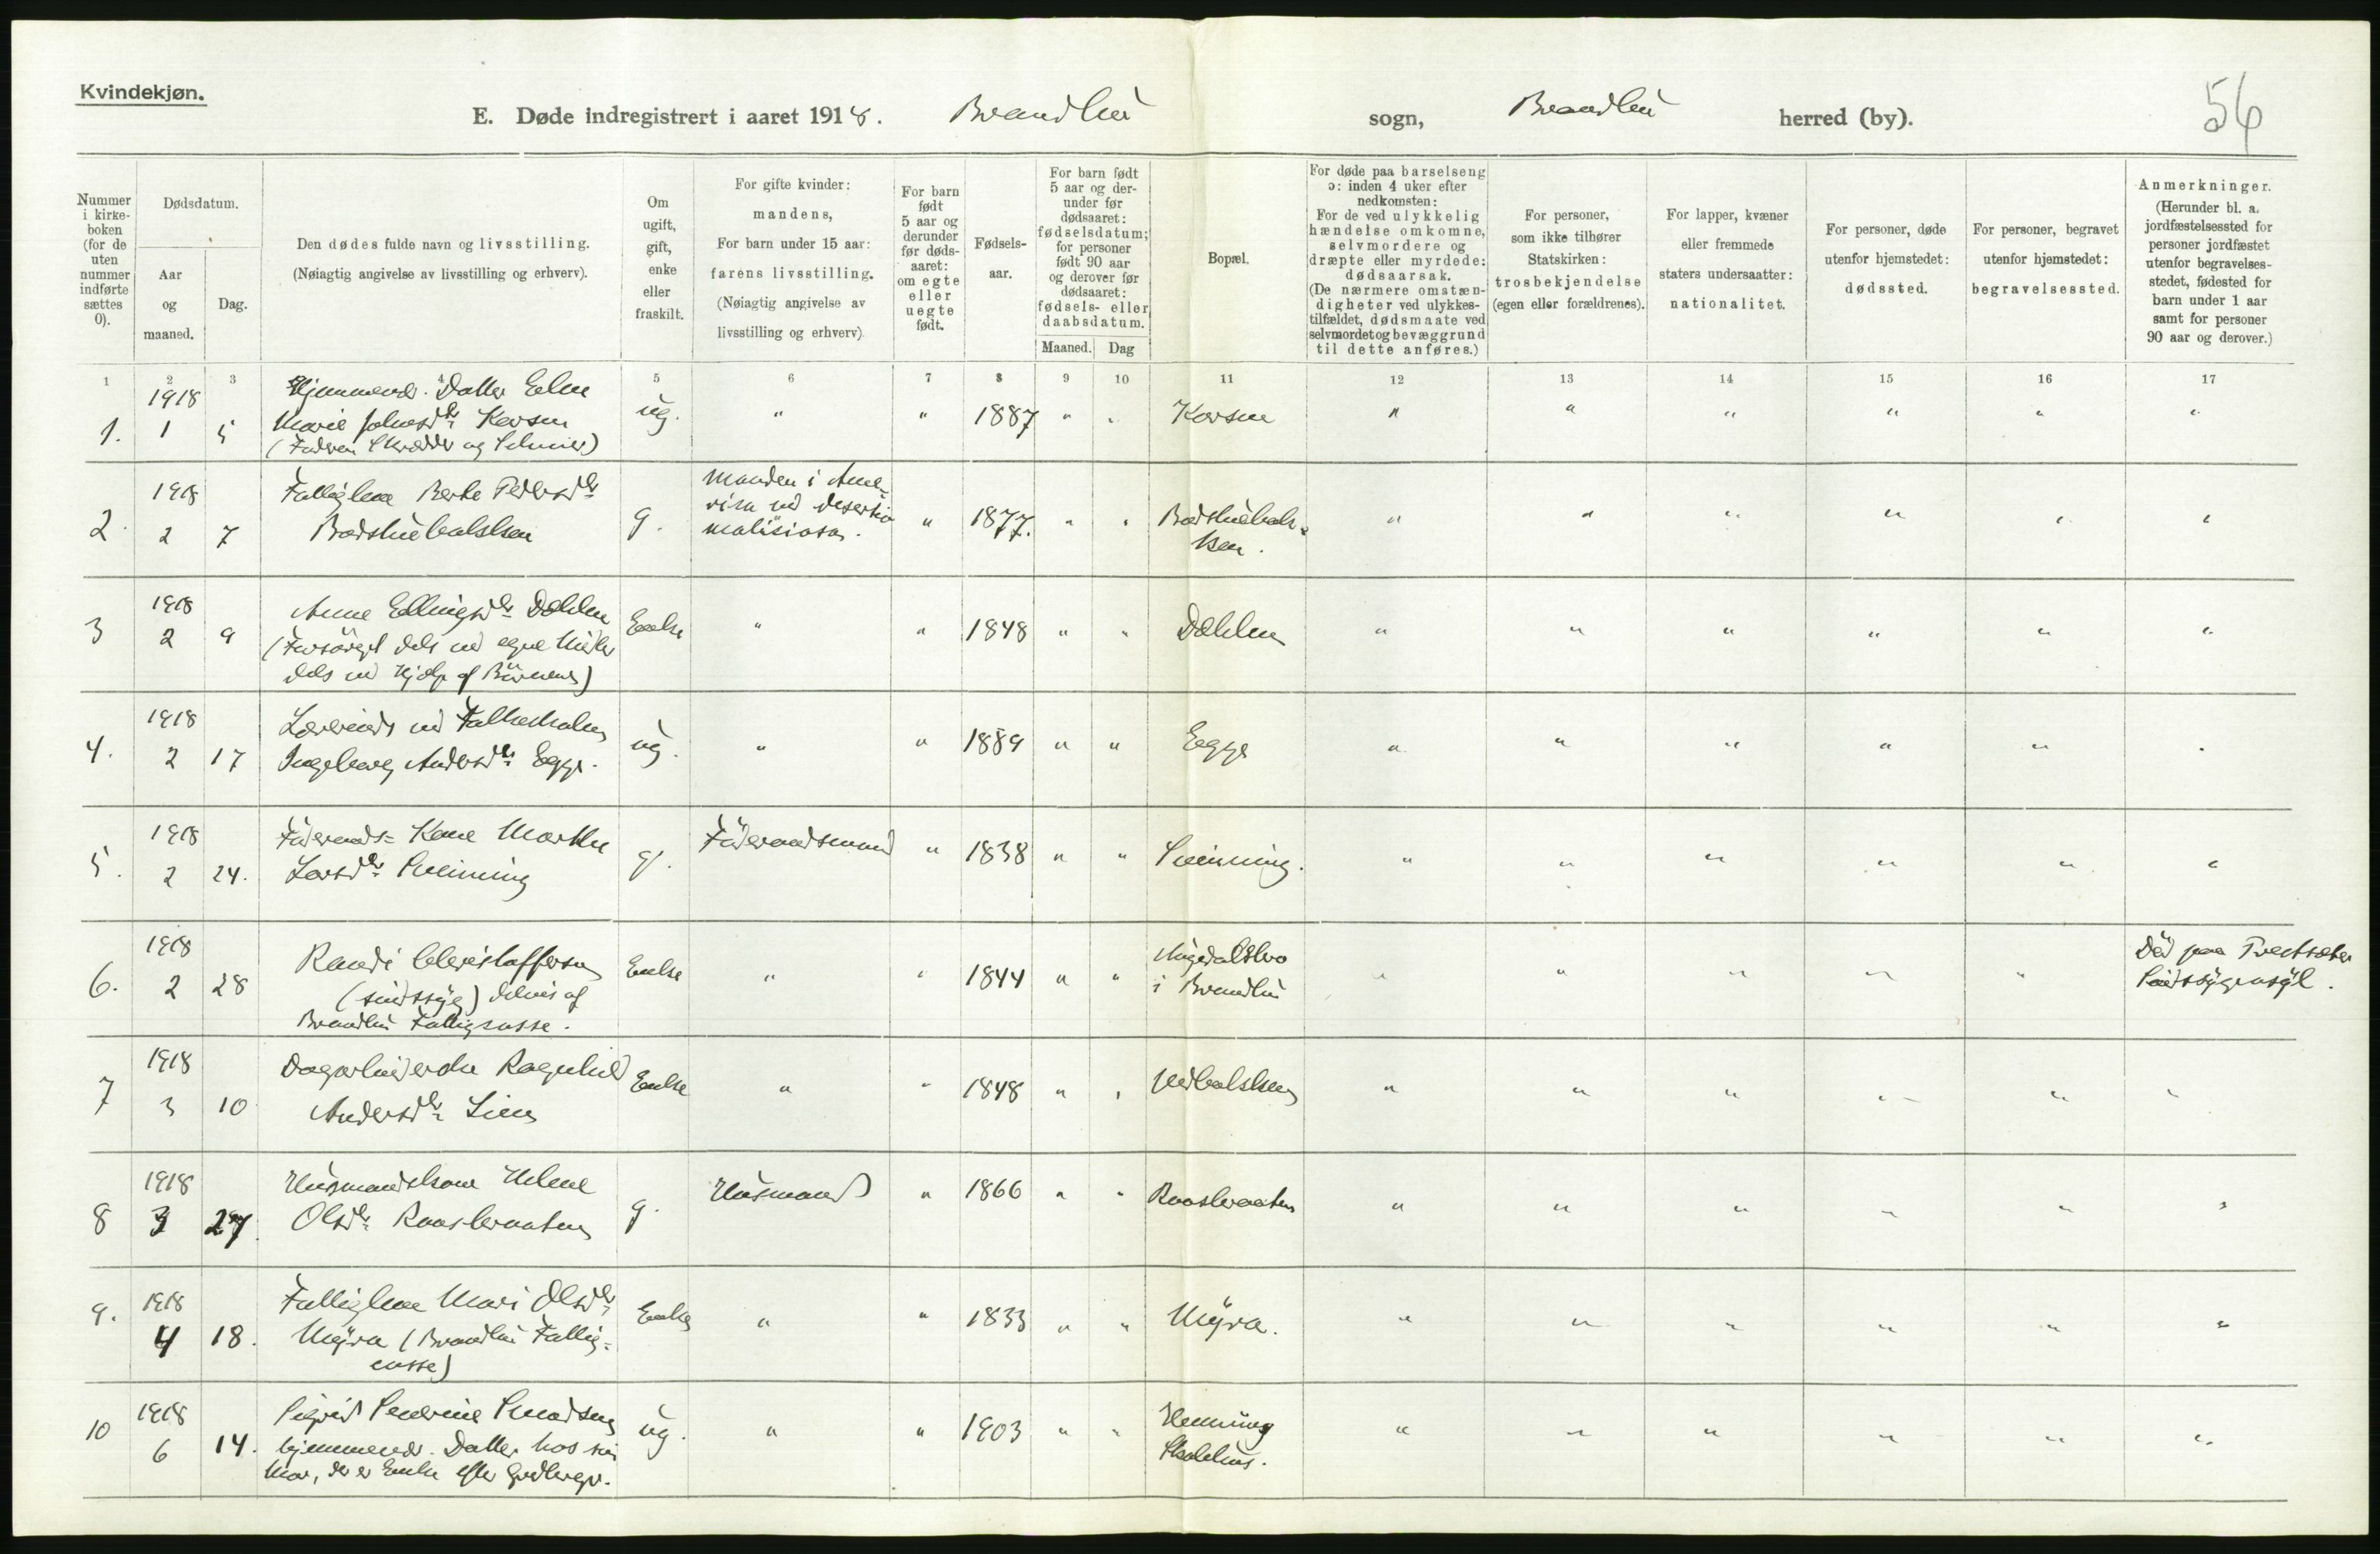 Kvindekjøn.
E. Døde indregistrert i aaret 1918. Brandbu sogn, Brandbu herred (by). 56
Nummer i kirke-boken (for de uten nummer indførte sættes 0).
Dødsdatum.
Aar og maaned.
Dag.
Den dødes fulde navn og livsstilling.
(Nøiagtig angivelse av livsstilling og erhverv).
Om ugift, gift, enke eller fraskilt.
For gifte kvinder: mandens,
For barn under 15 aar: farens livsstilling.
(Nøiagtig angivelse av livsstilling og erhverv)
For barn født 5 aar og derunder før døds-aaret: om egte eller uegte født.
Fødsels-aar.
For barn født 5 aar og der-under før dødsaaret: fødselsdatum; for personer født 90 aar og derover før dødsaaret: fødsels- eller daabsdatum.
Maaned. Dag
Bopæl.
For døde paa barselseng ɔ: inden 4 uker efter nedkomsten:
For de ved ulykkelig hændelse omkomne, selvmordere og dræpte eller myrdede: dødsaarsak.
(De nærmere omstæn-digheter ved ulykkes-tilfældet, dødsmaate ved selvmordet og bevæggrund til dette anføres.)
For personer, som ikke tilhører Statskirken: trosbekjendelse (egen eller forældrenes).
For lapper, kvæner eller fremmede staters undersaatter: nationalitet.
For personer, døde utenfor hjemstedet: dødssted.
For personer, begravet utenfor hjemstedet: begravelsessted.
Anmerkninger.
(Herunder bl. a. jordfæstelsessted for personer jordfæstet utenfor begravelses-stedet, fødested for barn under 1 aar samt for personer 90 aar og derover.)
1 2 3 4 5 6 7 8 9 10 11 12 13 14 15 16 17
1918 Hjemmevær. Datter
1. 1 5 Marie ug. " " 1887 " " " " " " " "
(Faderen Skrædder og
1918 Fattiglem Berte Pedersdtr Manden i Ame-
2. 2 7 g. rika ved desertio " 1877. " " " " " " " "
malisiosa.
1918 Anne Ellingsdtr Dæhlen
3 2 9 (Forsörget dels ved egne Midler Enke " " 1848 " " Dæhlen " " " " " "
dels ved Hjælp af Börnene)
1918 Lærerinde ved Folkeskolen
4. 2 17 Ingeborg Andersdtr Egge. ug. " " 1889 " " Egge " " " " " "
1918 Föderaads= Kone Marthe Föderaadsmand
5. 2 24. Larsdtr g. " 1838 " " " " " " " "
1918 Randi Christoffersen
6. 2 28 (sindssyg) delvis af Enke " " 1844 " " i Brandbu " " " " " Död paa
Brandbu Fattigkasse. Sindssygeasyl.
1918 Ragnhild
7 3 10 Andersdtr Lien Enke " " 1848 " " " " " " " "
1918 Husmandskone Helene
8 3 27. Olsdtr g. Husmand " 1866 " " " " " " " "
1918 Fattiglem Mari Olsdtr
9. 4 18. Myra (Brandbu Fattig= Enke " " 1833 " " Myra. " " " " " "
casse)
1918 Sigrid
10 6 14. hjemmevær. Datter hos sin ug. " " 1903 " " " " " " " "
Mor, der er Enke efter Gardbrger.